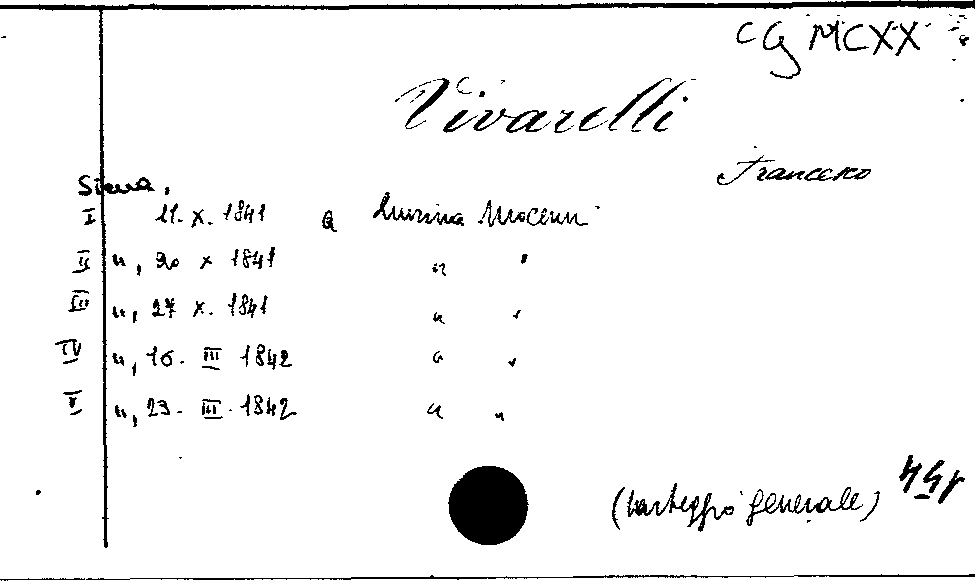 CG MCXX
Vivarelli
Francesco
Siena,
I 11. X. 1841 a Mocenni
II ", 20 X 1841 " "
III ", 27 X. 1841 " "
IV ", 16. III 1842 " "
V ", 23. III. 1842 " "
(Carteggio generale)